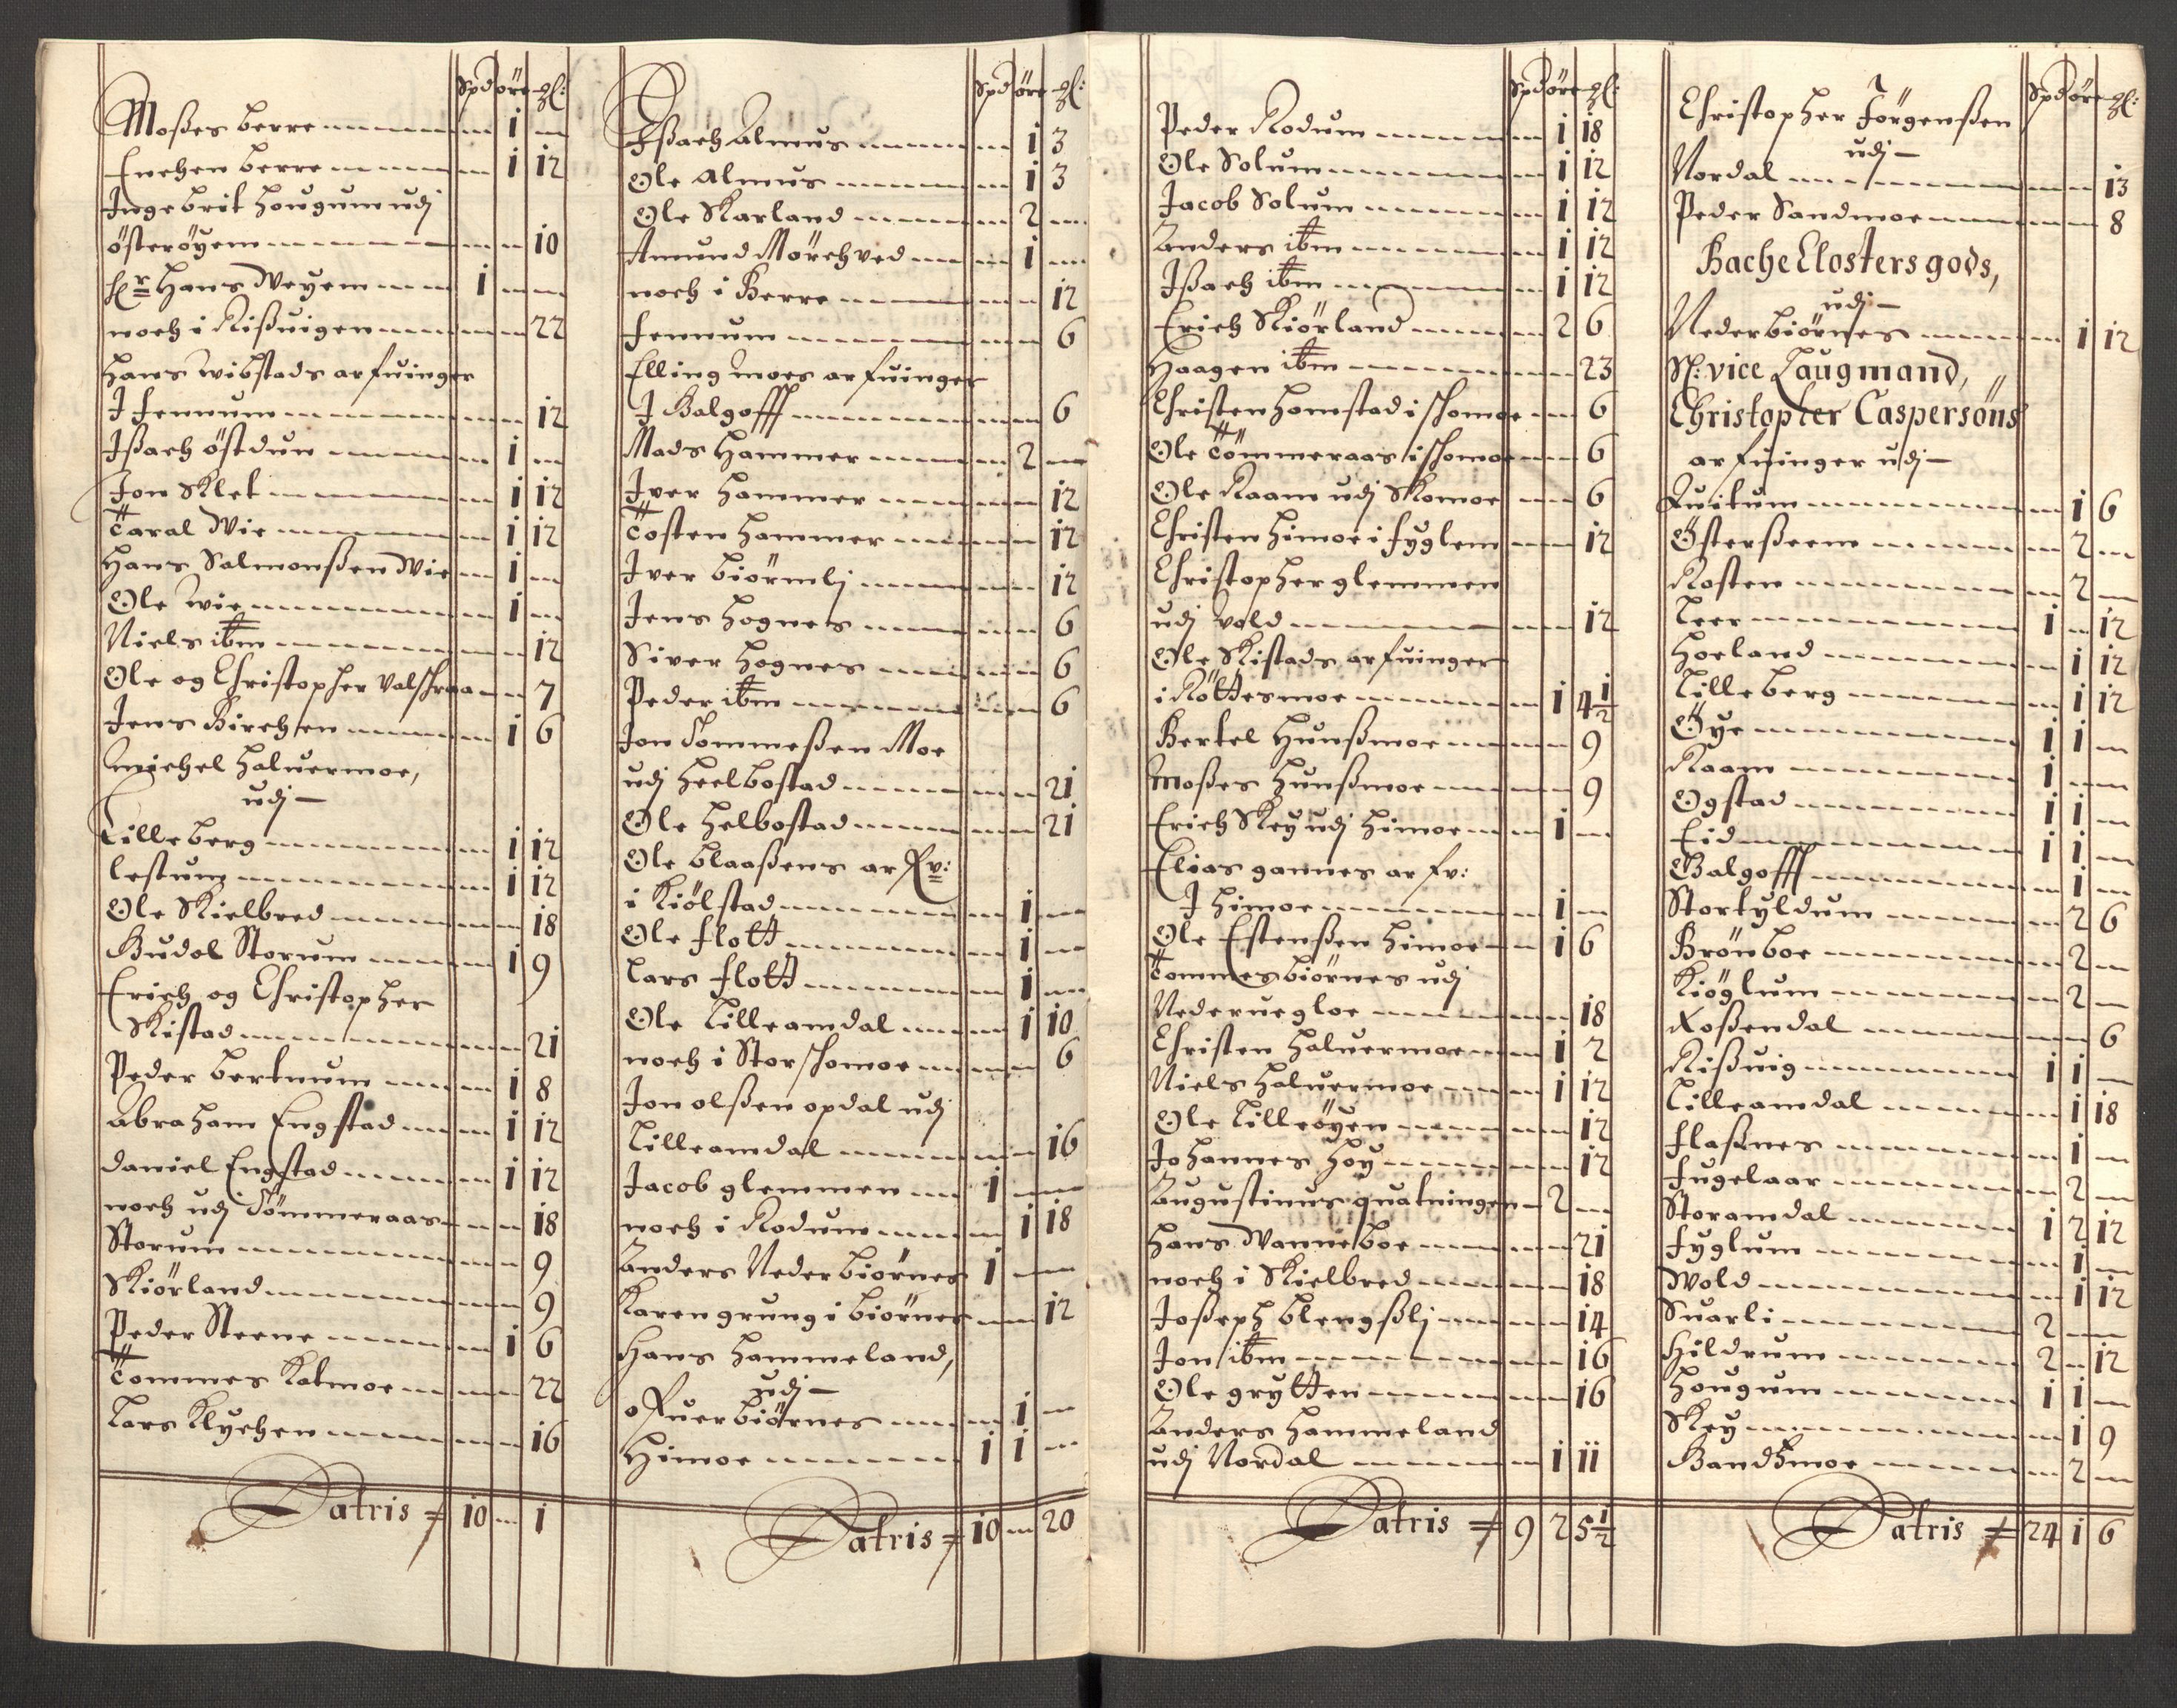 Spd öre gl:
Moßes berre — 1 —
Enchen berre — 1 12
Ingebrit hougum udj
österöyem — 10
Hr Hans Weyem — 1 — —
noch i Rißuigen — 22
Hans wibstads arfuinger
J fennum — 12
Jßach östdun — 1 —
Jon Klet — 1 12
Taral Wie — 1 12
Hans Salmonßen Wie — 1 —
Ole Wie — 1 —
Niels ibm — 12
Ole og Christopher Valschraa — 7
Jens Birchsen — 1 6
Michel haluermoe,
udj —
Lilleberg — 1 12
lestum — 1 12
Ole Skielbred — 18
Budol Storum — 1 9
Erich og Christopher
Skistad — 21
Peder bertnum — 1 8
Abraham Engstad — 1 12
Daniel Engstad — 1 12
noch udj Tömmeraas — 18
Storum — 9
Skiörland — 9
Peder Steene — 1 6
Tommes Katmoe — 22
Lars Klychen — 16
Latris 10 — 1
Spd öre gl:
Jßach Almus — 1 3
Ole Almus — 1 3
Ole Skarland — 2 —
Amund Mörchved — 1 —
noch i Berre — 12
fennum — 6
Elling moes arfuinger
J Galgofff — 6
Mads Hammer — 2 —
Iver Hammer — 12
Tosten Hammer — 12
Iver biörmlj — 12
Jens hognes — 6
Siver hognes — 6
Peder ibm — 6
Jon Tommeßen Moe
udj heelbostad — 21
Ole helbostad — 21
Ole blaaßens arfv:
i Kiölstad — 1 —
Ole flott — 1 —
Lars flott — 1 —
Ole Lilleamdal — 1 10
noch i Storschomoe — 6
Jon olßen opdal udj
Lilleamdal — 16
Jacob glemmen — 1 — —
noch i Rodum — 1 18
Anders Nederbiörnes 1 — —
Karen grung i biörnes — 12
Hans Hammeland,
udj —
ofuerbiörnes — 1 —
Himoe — 1 1 —
Latris 10 — 20
Spd öre gl:
Peder Rodum — 1 18
Ole Solum — 1 12
Jacob Solum — 1 12
Anders ibm — 1 12
Jßach ibm — 1 12
Erich Skiörland — 2 6
Haagen ibm — 23
Christen homstad i schomoe — 6
Ole Tömmeraas i schomoe — 6
Ole Raam udj Skomoe — 6
Christen himoe i fyglem — 12
Christopher glemmen
udj Vold — 12
Ole Skistads arfuinger
i Röttesmoe — 1 4 1/2
Bertel Hunßmoe — 9
Moßes Hunßmoe — 9
Erich Skey udj himoe — 1 —
Elias gannes arfv:
J himoe — 1 —
Ole Estenßen himoe — 1 6
Tommes biörnes udj
Nederuegloe — 18
Christen haluermoe — 1 2
Niels haluermoe — 1 12
Ole Lilleöyen — 12
Johannes hoy — 12
Augustinus quatningen — 2 —
Hans Wanneboe — 21
noch i Skielbred — 18
Joßeph blengßlj — 14
Jon ibm — 16
Ole grytten — 16
Anders hammeland
udj Nordal — 1 11
Latris 9 2 5 1/2
Spd öre gl:
Christopher Jörgenßen
udj —
Nordal — 13
Peder Sandmoe — 8
Bache Closters gods,
udj —
Nederbiörnes — 1 12
Sl: vice Laugmand,
Christopher Caspersöns
arfuinger udj —
Quitum — 1 6
Österßeem — 2 —
Rosten — 2 —
Leer — 1 — 12
Hoeland — 1 12
Lilleberg — 1 12
Öye — 1 1 —
Raam — 1 —
Ogstad — 1 1 —
Eid — 1 1 —
Galgofff — 1 —
Stortyldum — 2 6
Brönboe — 2 —
Kiöglum — 2 —
Roßendal — 6
Rißuig — 1 1 —
Lilleamdal — 1 18
flaßnes — 1 —
fugelaar — 2 —
Storamdal — 1 2 12
fyglum — 1 —
Wold — 1 12
Suarli — 2 —
Hildrum — 2 — 12
Hougum — 1 1 —
Skey — 1 9
Bandßmoe — 2 —
Latris 24 1 6